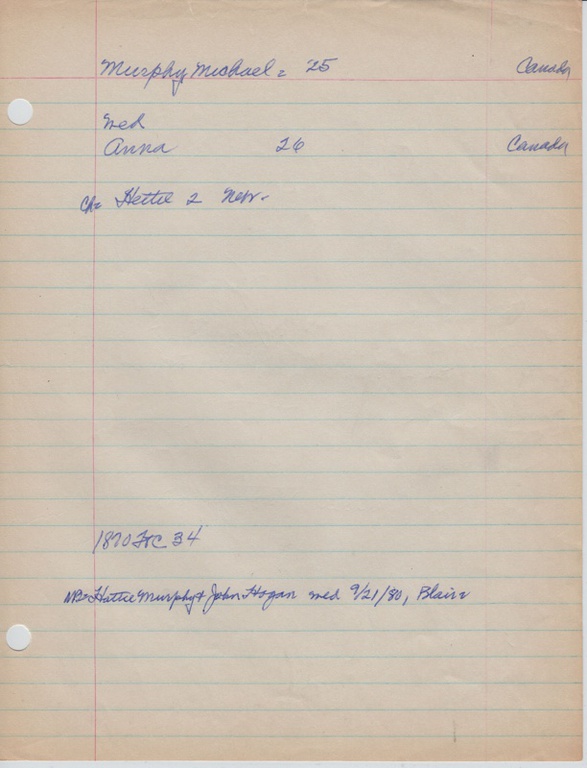 Murphy Michael = 25 Canada
med
Anna 26 Canada
ch= Hettie 2 Nebr.
1870 34
Hattie Murphy + John Hogan med 9/21/80, Blair